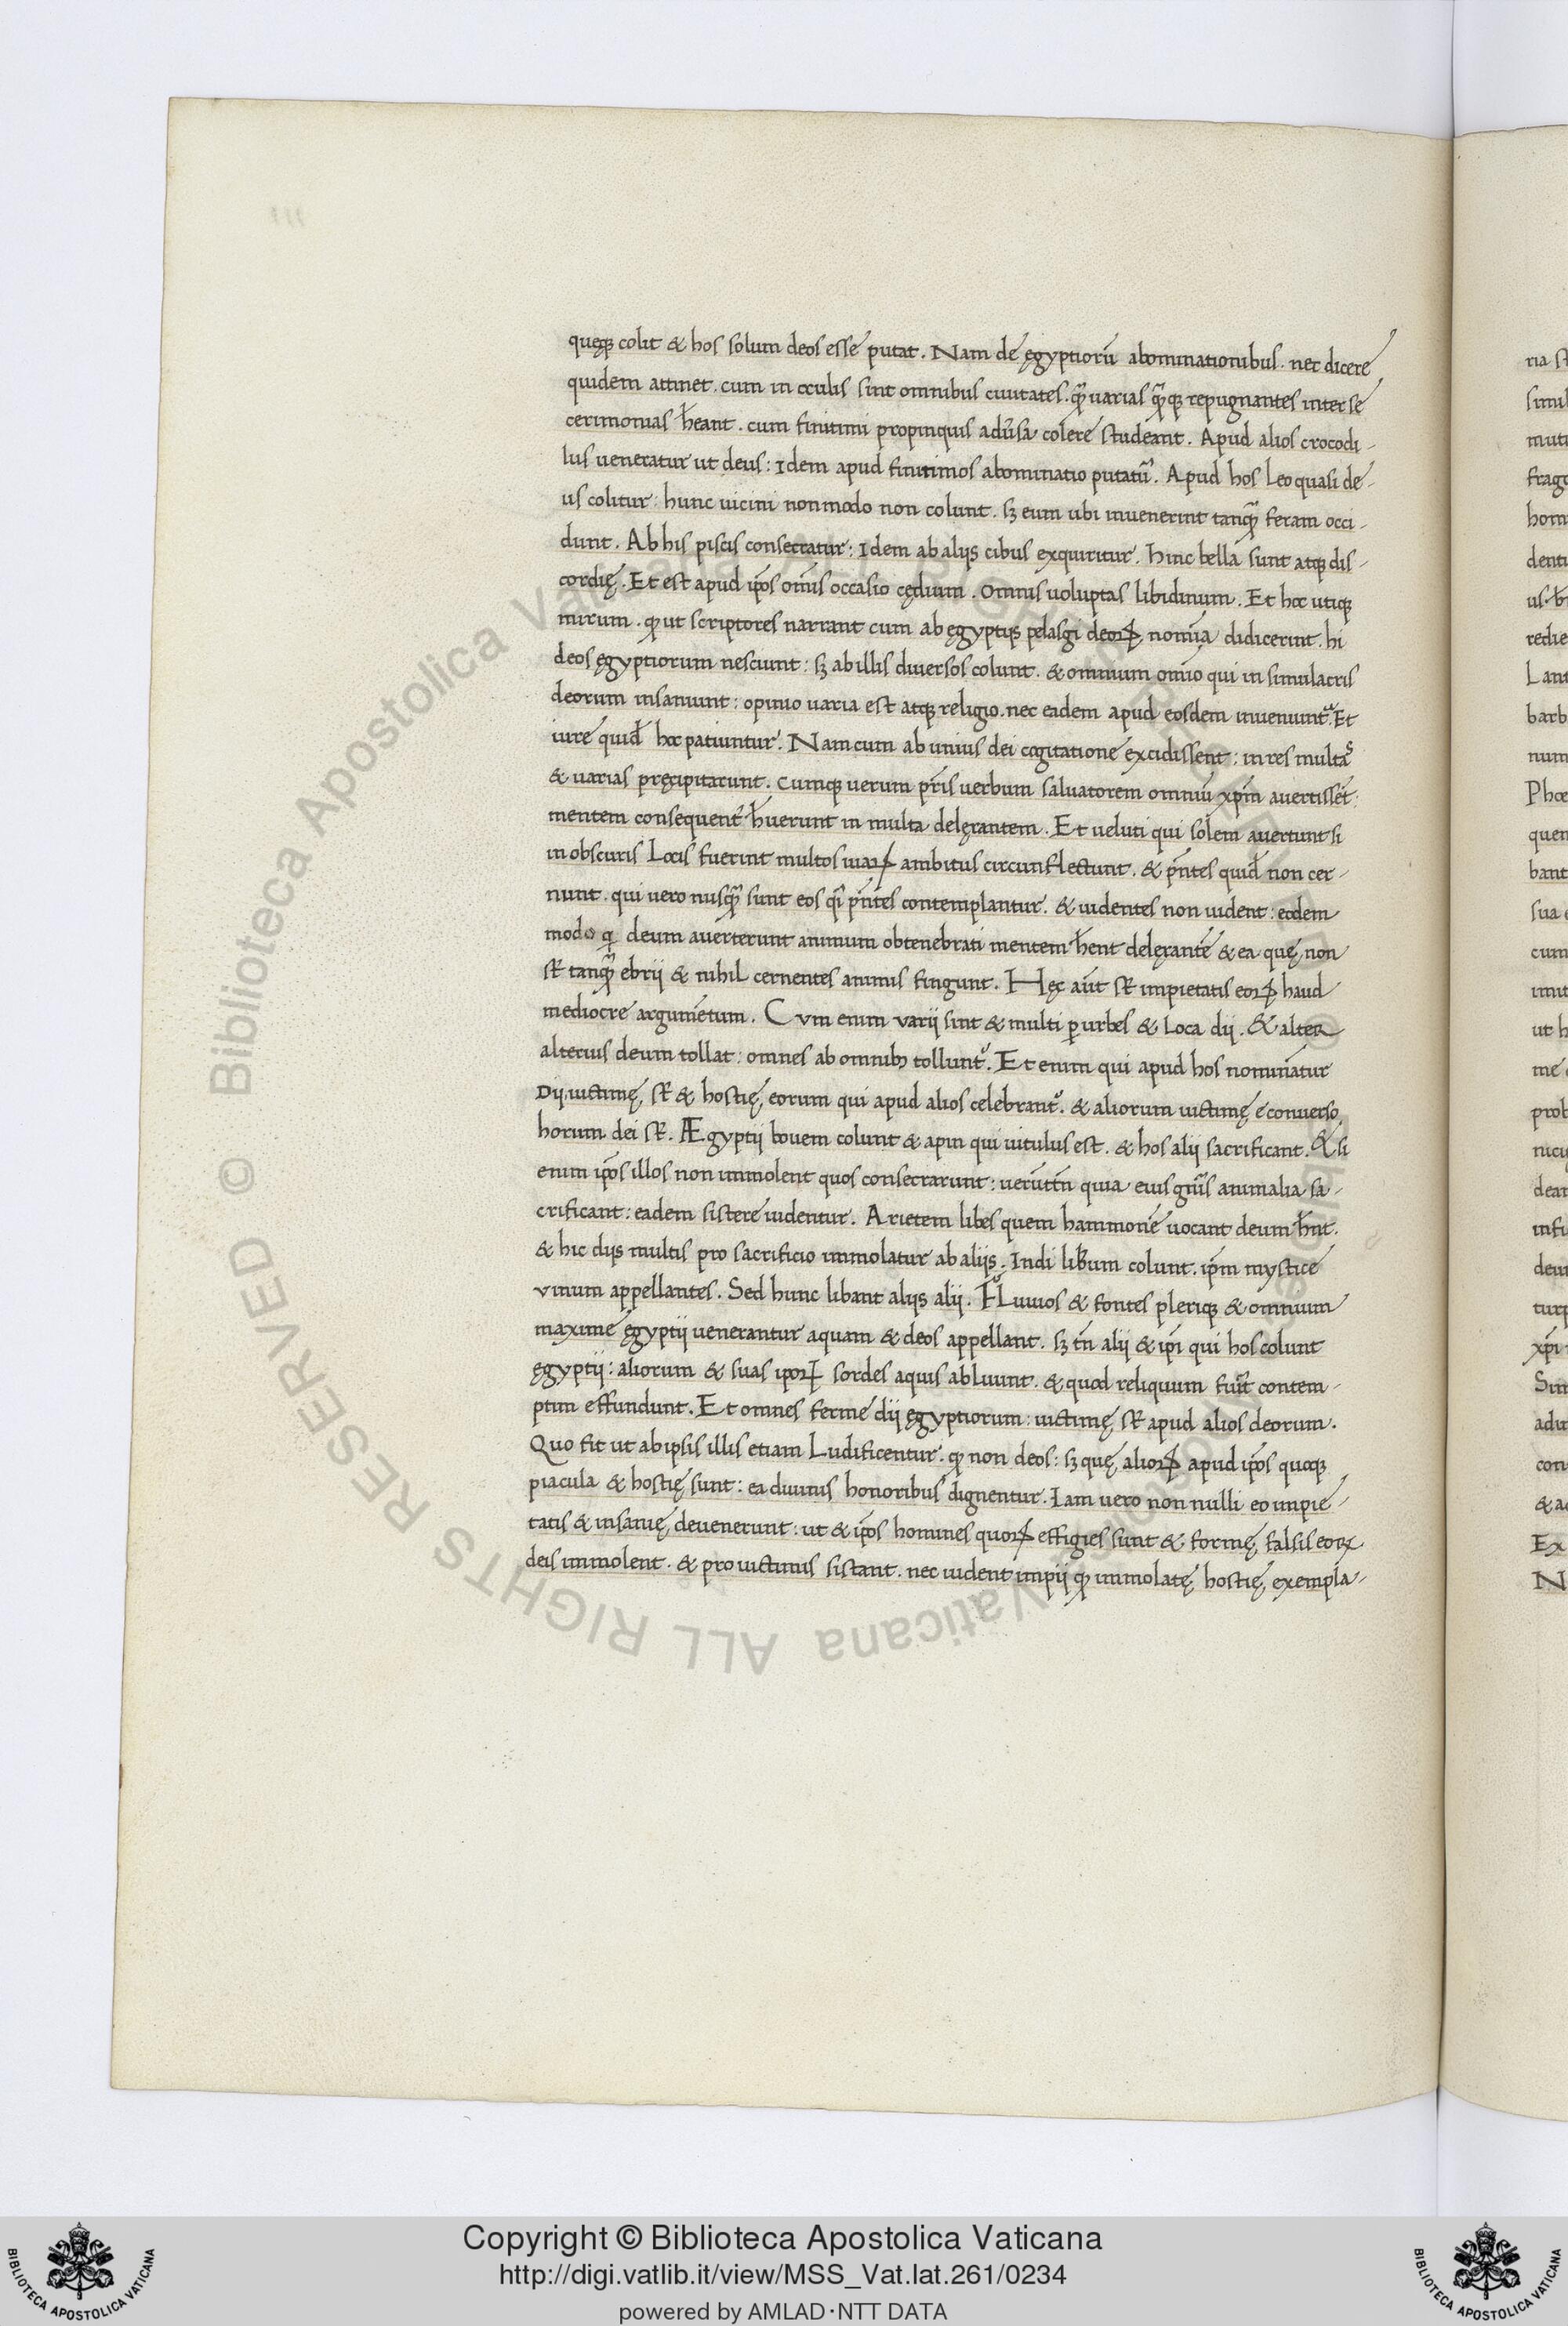 queqꝫ colit & hos solum deos esse putat. Nam de ęgyptiorū abominationibus. nec dicere
quidem attinet. cum in oculis sint omnibus ciuitates. quā uarias quāqꝫ repugnantes inter se
cerimonias hēant. cum finitimi propinquis adūsa colere studeant. Apud alios crocodi-
lus ueneratur ut deus: idem apud finitimos abominatio putat̄. Apud hos Leo quasi de-
us colitur: hunc uicini non modo non colunt. sꝫ eum ubi inuenerint tanquā feram occi-
dunt. Ab his piscis consecratur: idem ab alijs cibus exquiritur. hinc bella sunt atqꝫ dis-
cordię. Et est apud ip̄os om̄is occasio cędium. Omnis uoluptas libidinum. Et hoc utiqꝫ
mirum. ꝙ ut scriptores narrant cum ab ęgyptijs pelasgi deoꝝ nom̄ia didicerint. hi
deos ęgyptiorum nesciunt: sꝫ ab illis diuersos colunt. & omnium om̄io qui in simulacris
deorum insaniunt: opinio uaria est atqꝫ religio. nec eadem apud eosdem inueniunt̄. Et
iure quid̄ hoc patiuntur. Nam cum ab unius dei cogitatione excidissent: in res multas
& uarias pręcipitarunt. Cumqꝫ uerum pr̄is uerbum saluatorem omniū xp̄m auertissēt:
mentem consequent̄ h̄uerunt in multa delęrantem. Et ueluti qui solem auertunt si
in obscuris Locis fuerint multos uiaꝝ ambitus circunflectunt. & p̄ntes quid̄ non cer-
nunt. qui uero nusquā sunt eos q̄i p̄ntes contemplantur. & uidentes non uident: eodem
modo q deum auerterunt animum obtenebrati mentem h̄ent delęrantē & ea quę non
st̄ tanquā ebrii & nihil cernentes animis fingunt. Hęc aūt st̄ impietatis eoꝝ haud
mediocre argumētum. Cvm enim varii sint & multi ꝑ urbes & Loca dii. & alter
alterius deum tollat: omnes ab omnibꝫ tollunt̄. Et enim qui apud hos nominātur
Dij. uictimę st̄ & hostię eorum qui apud alios celebrant̄. & aliorum uictimę e conuerso
horum dei st̄. Ægyptij bouem colunt & apin qui uitulus est. & hos alij sacrificant. & si
enim ip̄os illos non immolent quos consecrarunt: uerūtn̄ quia eius gn̄is animalia sa-
crificant: eadem sistere uidentur. Arietem libes quem hammonē uocant deum h̄nt.
& hic dijs multis pro sacrificio immolatur ab alijs. Indi lib̄um colunt. ip̄m mystice
vinum appellantes. Sed hunc libant alijs alii. Fluuios & fontes pleriqꝫ & omnium
maxime ęgyptij uenerantur aquam & deos appellant. sꝫ tn̄ alii & ip̄i qui hos colunt
ęgyptij: aliorum & suas ipoꝝ sordes aquis abluunt. & quod reliquum fuīt contem-
ptim effundunt. Et omnes ferme dij ęgyptiorum: uictimę st̄ apud alios deorum.
Quo fit ut ab ipsis illis etiam Ludificentur. ꝙ non deos: sꝫ quę alioꝝ apud ip̄os quoqꝫ
piacula & hostię sunt: ea diuinis honoribus dignentur. Iam uero non nulli eo impie-
tatis & insanię deuenerunt: ut & ip̄os homines quoꝝ effigies sunt & formę falsis eoꝝ
deis immolent. & pro uictimis sistant. nec uident impij ꝙ immolatę hostię exempla-
Copyright © Biblioteca Apostolica Vaticana
http://digi.vatlib.it/view/MSS_Vat.lat.261/0234
powered by AMLAD·NTT DATA